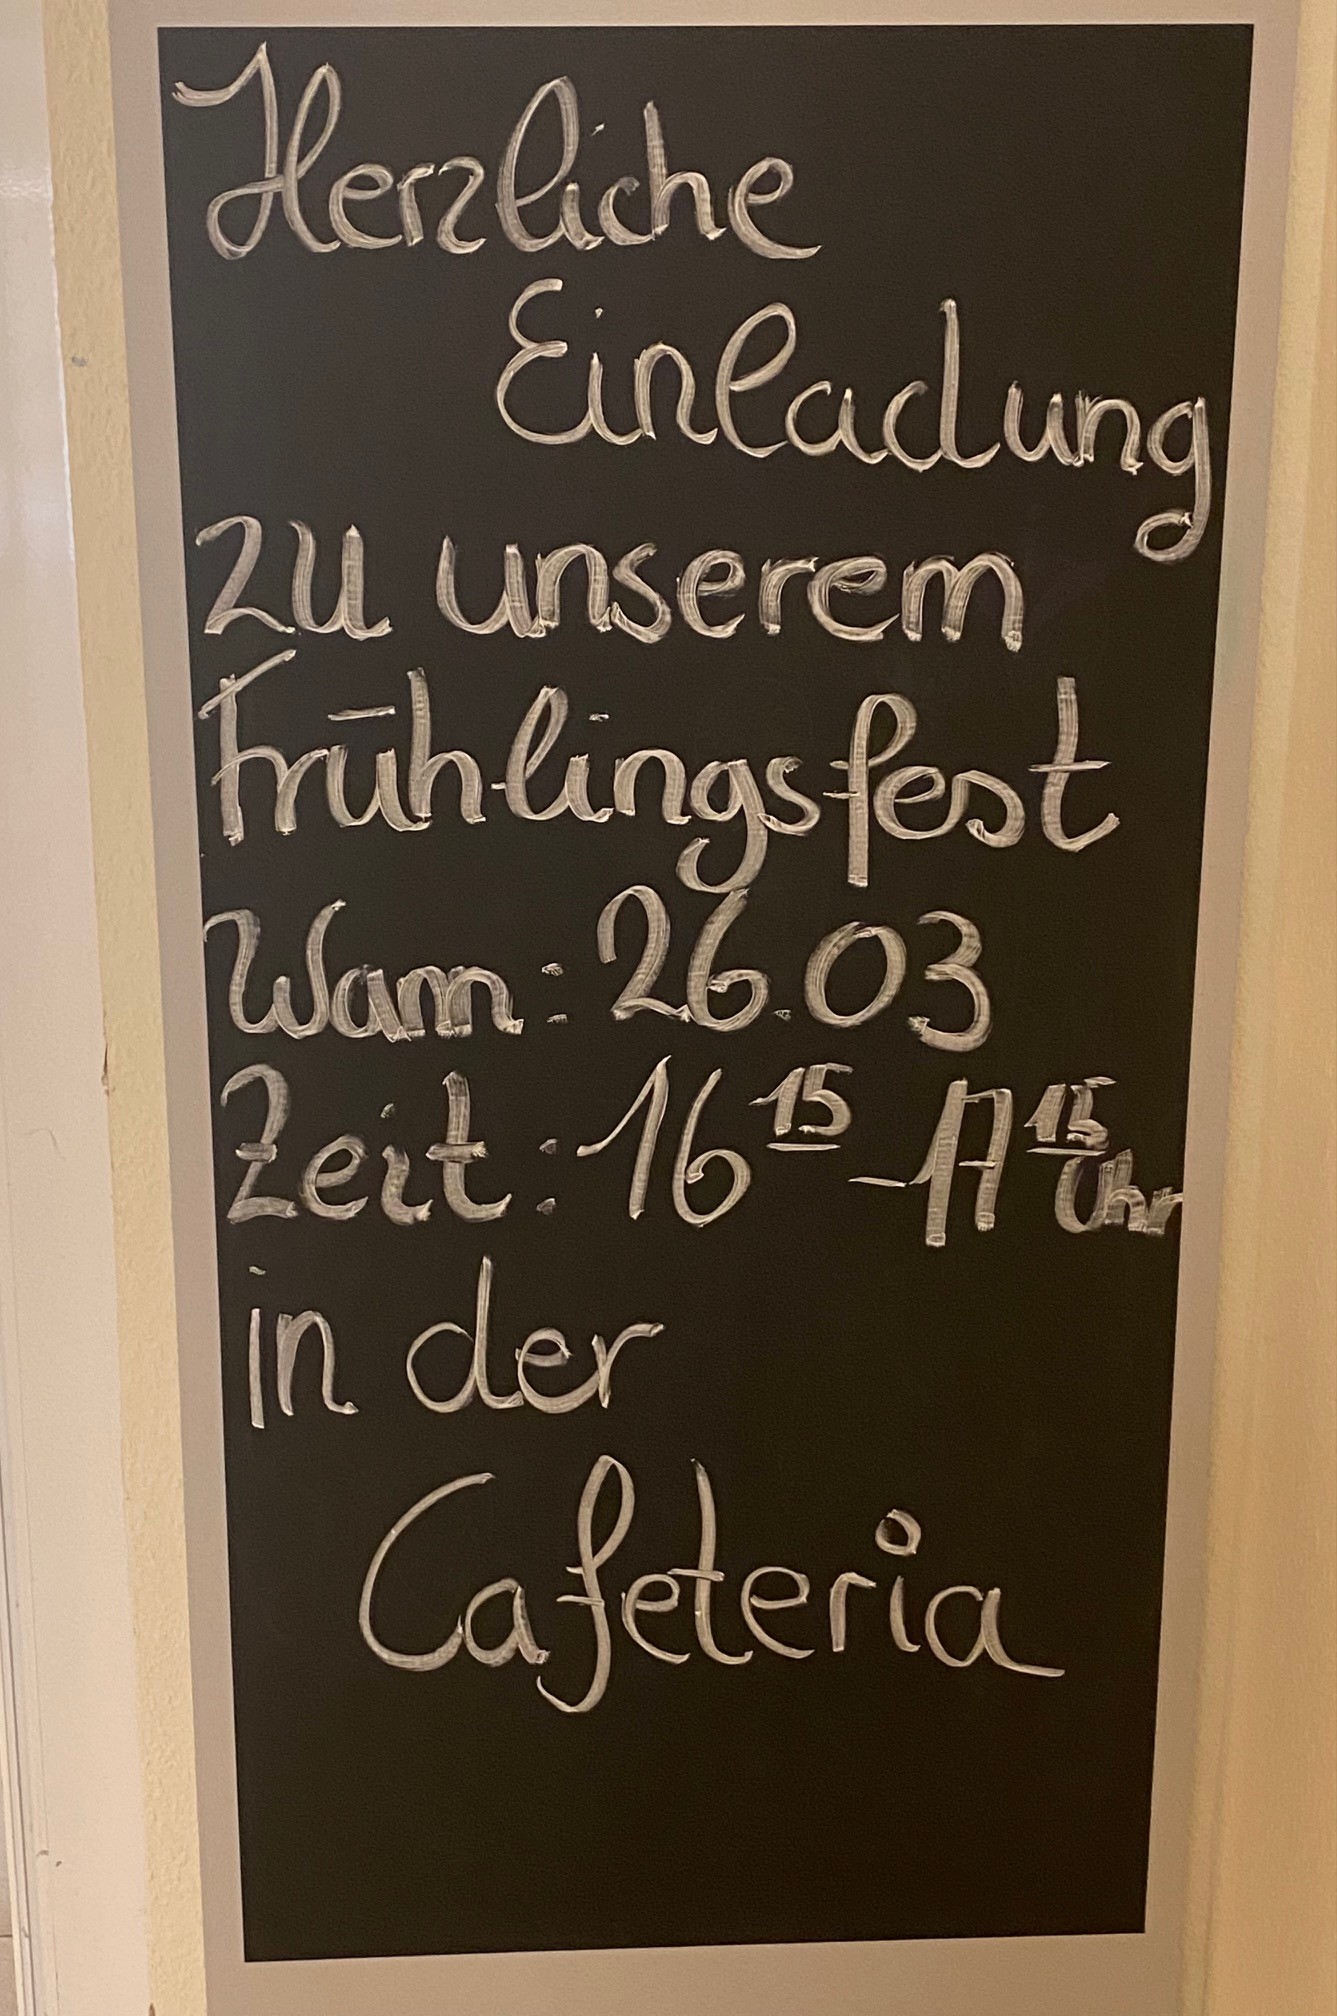 Herzliche
Einladung
zu unserem
Frühlingsfest
Wann: 26.03
Zeit: 16 15 - 17 15 Uhr
in der
Cafeteria